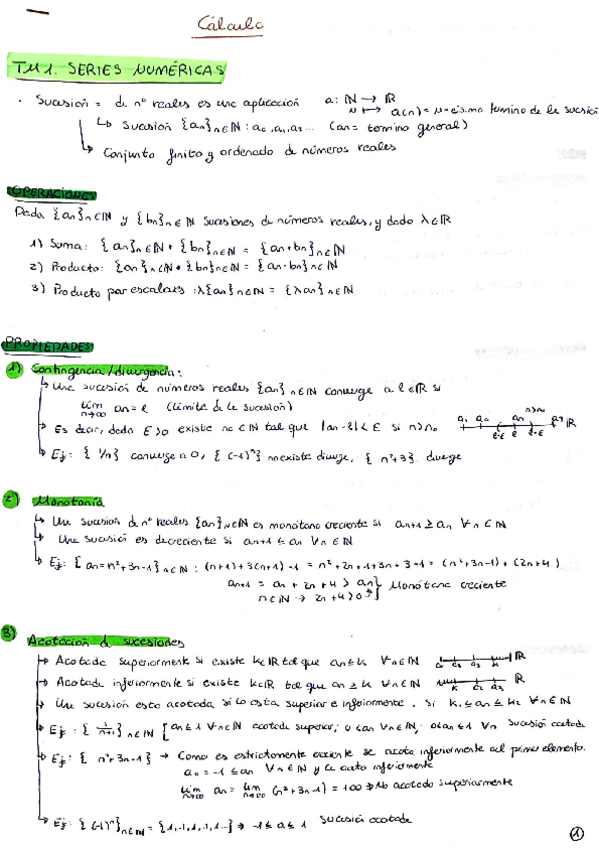 Cálculo
TM 1. SERIES NUMÉRICAS
· Sucesión = de nº reales es una aplicación a: ℕ → ℝ
n ↦ a(n) = n-ésimo termino de la sucesión
↳ Sucesión {an}n∈ℕ : a0, a1, a2 ... (an = termino general)
↳ Conjunto finito y ordenado de números reales
OPERACIONES
Dada {an}n∈ℕ y {bn}n∈ℕ sucesiones de números reales, y dado λ∈ℝ
1) Suma: {an}n∈ℕ + {bn}n∈ℕ = {an+bn}n∈ℕ
2) Producto: {an}n∈ℕ • {bn}n∈ℕ = {an·bn}n∈ℕ
3) Producto por escalares : λ{an}n∈ℕ = {λan}n∈ℕ
PROPIEDADES
1) Contingencia/divergencia:
↳ Una sucesión de números reales {an}n∈ℕ converge a l∈ℝ si
lim n→∞ an = l (límite de la sucesión)
↳ Es decir, dado ε>0 existe n0∈ℕ tal que |an-l|<ε si n>n0
↳ Ej: {1/n} converge a 0, {(-1)^n} no existe diverge, {n²+3} diverge
2) Monotonía
↳ Una sucesión de nº reales {an}n∈ℕ es monótona creciente si an+1 ≥ an ∀n∈ℕ
↳ Una sucesión es decreciente si an+1 ≤ an ∀n∈ℕ
↳ Ej: {an=n²+3n-1}n∈ℕ : (n+1)+3(n+1)-1 = n²+2n+1+3n+3-1 = (n²+3n-1)+(2n+4)
an+1 = an + 2n+4 > an
n∈ℕ → 2n+4>0 } Monótona creciente
3) Acotación de sucesiones
→ Acotada superiormente si existe k∈ℝ tal que an≤k ∀n∈ℕ
→ Acotada inferiormente si existe k∈ℝ tal que an≥k ∀n∈ℕ
→ Una sucesión esta acotada si lo esta superior e inferiormente. Si k1≤an≤k2 ∀n∈ℕ
→ Ej: {1/n+1}n∈ℕ [an≤1 ∀n∈ℕ acotada superior; 0≤an ∀n∈ℕ; 0≤an≤1 ∀n Sucesión acotada
→ Ej: {n²+3n-1} → Como es estrictamente creciente se acota inferiormente al primer elemento.
a0 = -1 ≤ an ∀n∈ℕ y inferiormente
lim n→∞ an = lim n→∞ (n²+3n-1) = +∞ ⇒ No acotada superiormente
→ Ej: {(-1)^n}n∈ℕ = {1,-1,1,-1...} ⇒ -1≤a≤1 Sucesión acotada
1